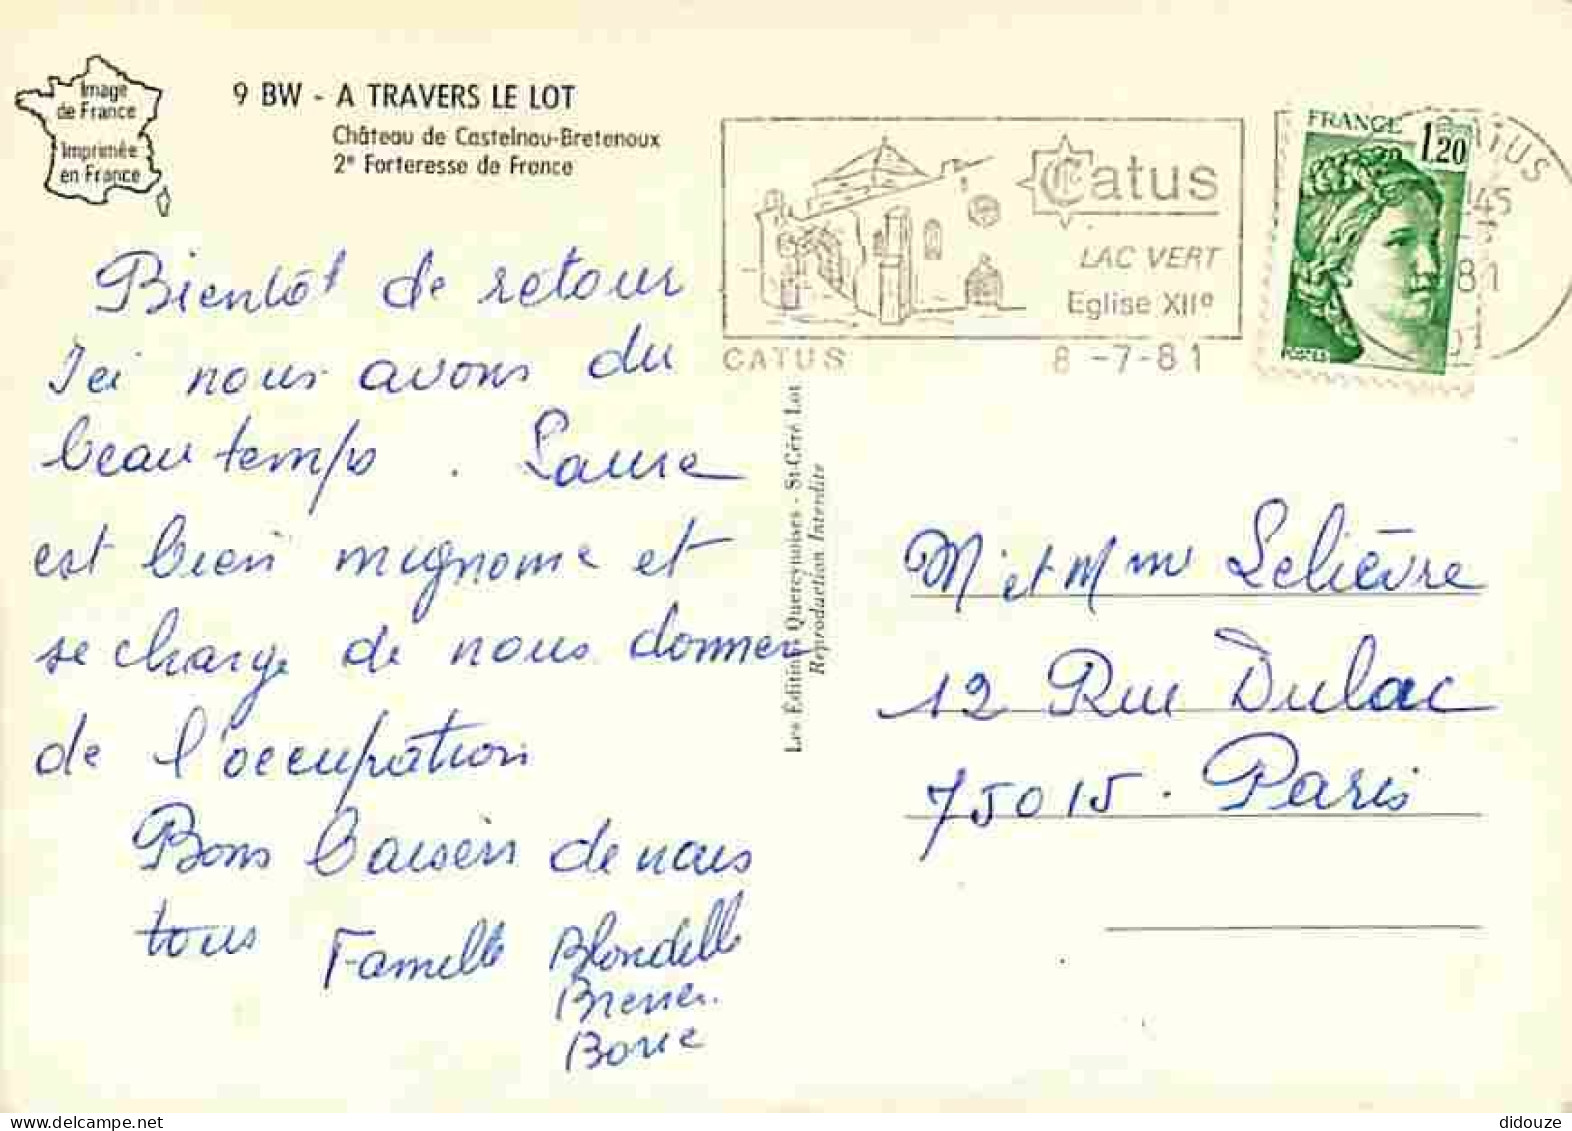 Image
de France
Imprimée
en France
9 BW - A TRAVERS LE LOT
Château de Castelnau-Bretenoux
2e Forteresse de France
Catus
LAC VERT
Eglise XIIe
CATUS 8-7-81
FRANCE
1,20
POSTES
CATUS
81
Bientôt de retour
Ici nous avons du
beau temps. Laure
est bien mignonne et
se charge de nous donner
de l'occupation
Bons baisers de nous
tous Famille Blondelle
Les Éditions Quercynoises - St-Céré Lot
Reproduction Interdite
Mr et Mme Lelièvre
12 Rue Dulac
75015. Paris
didouze